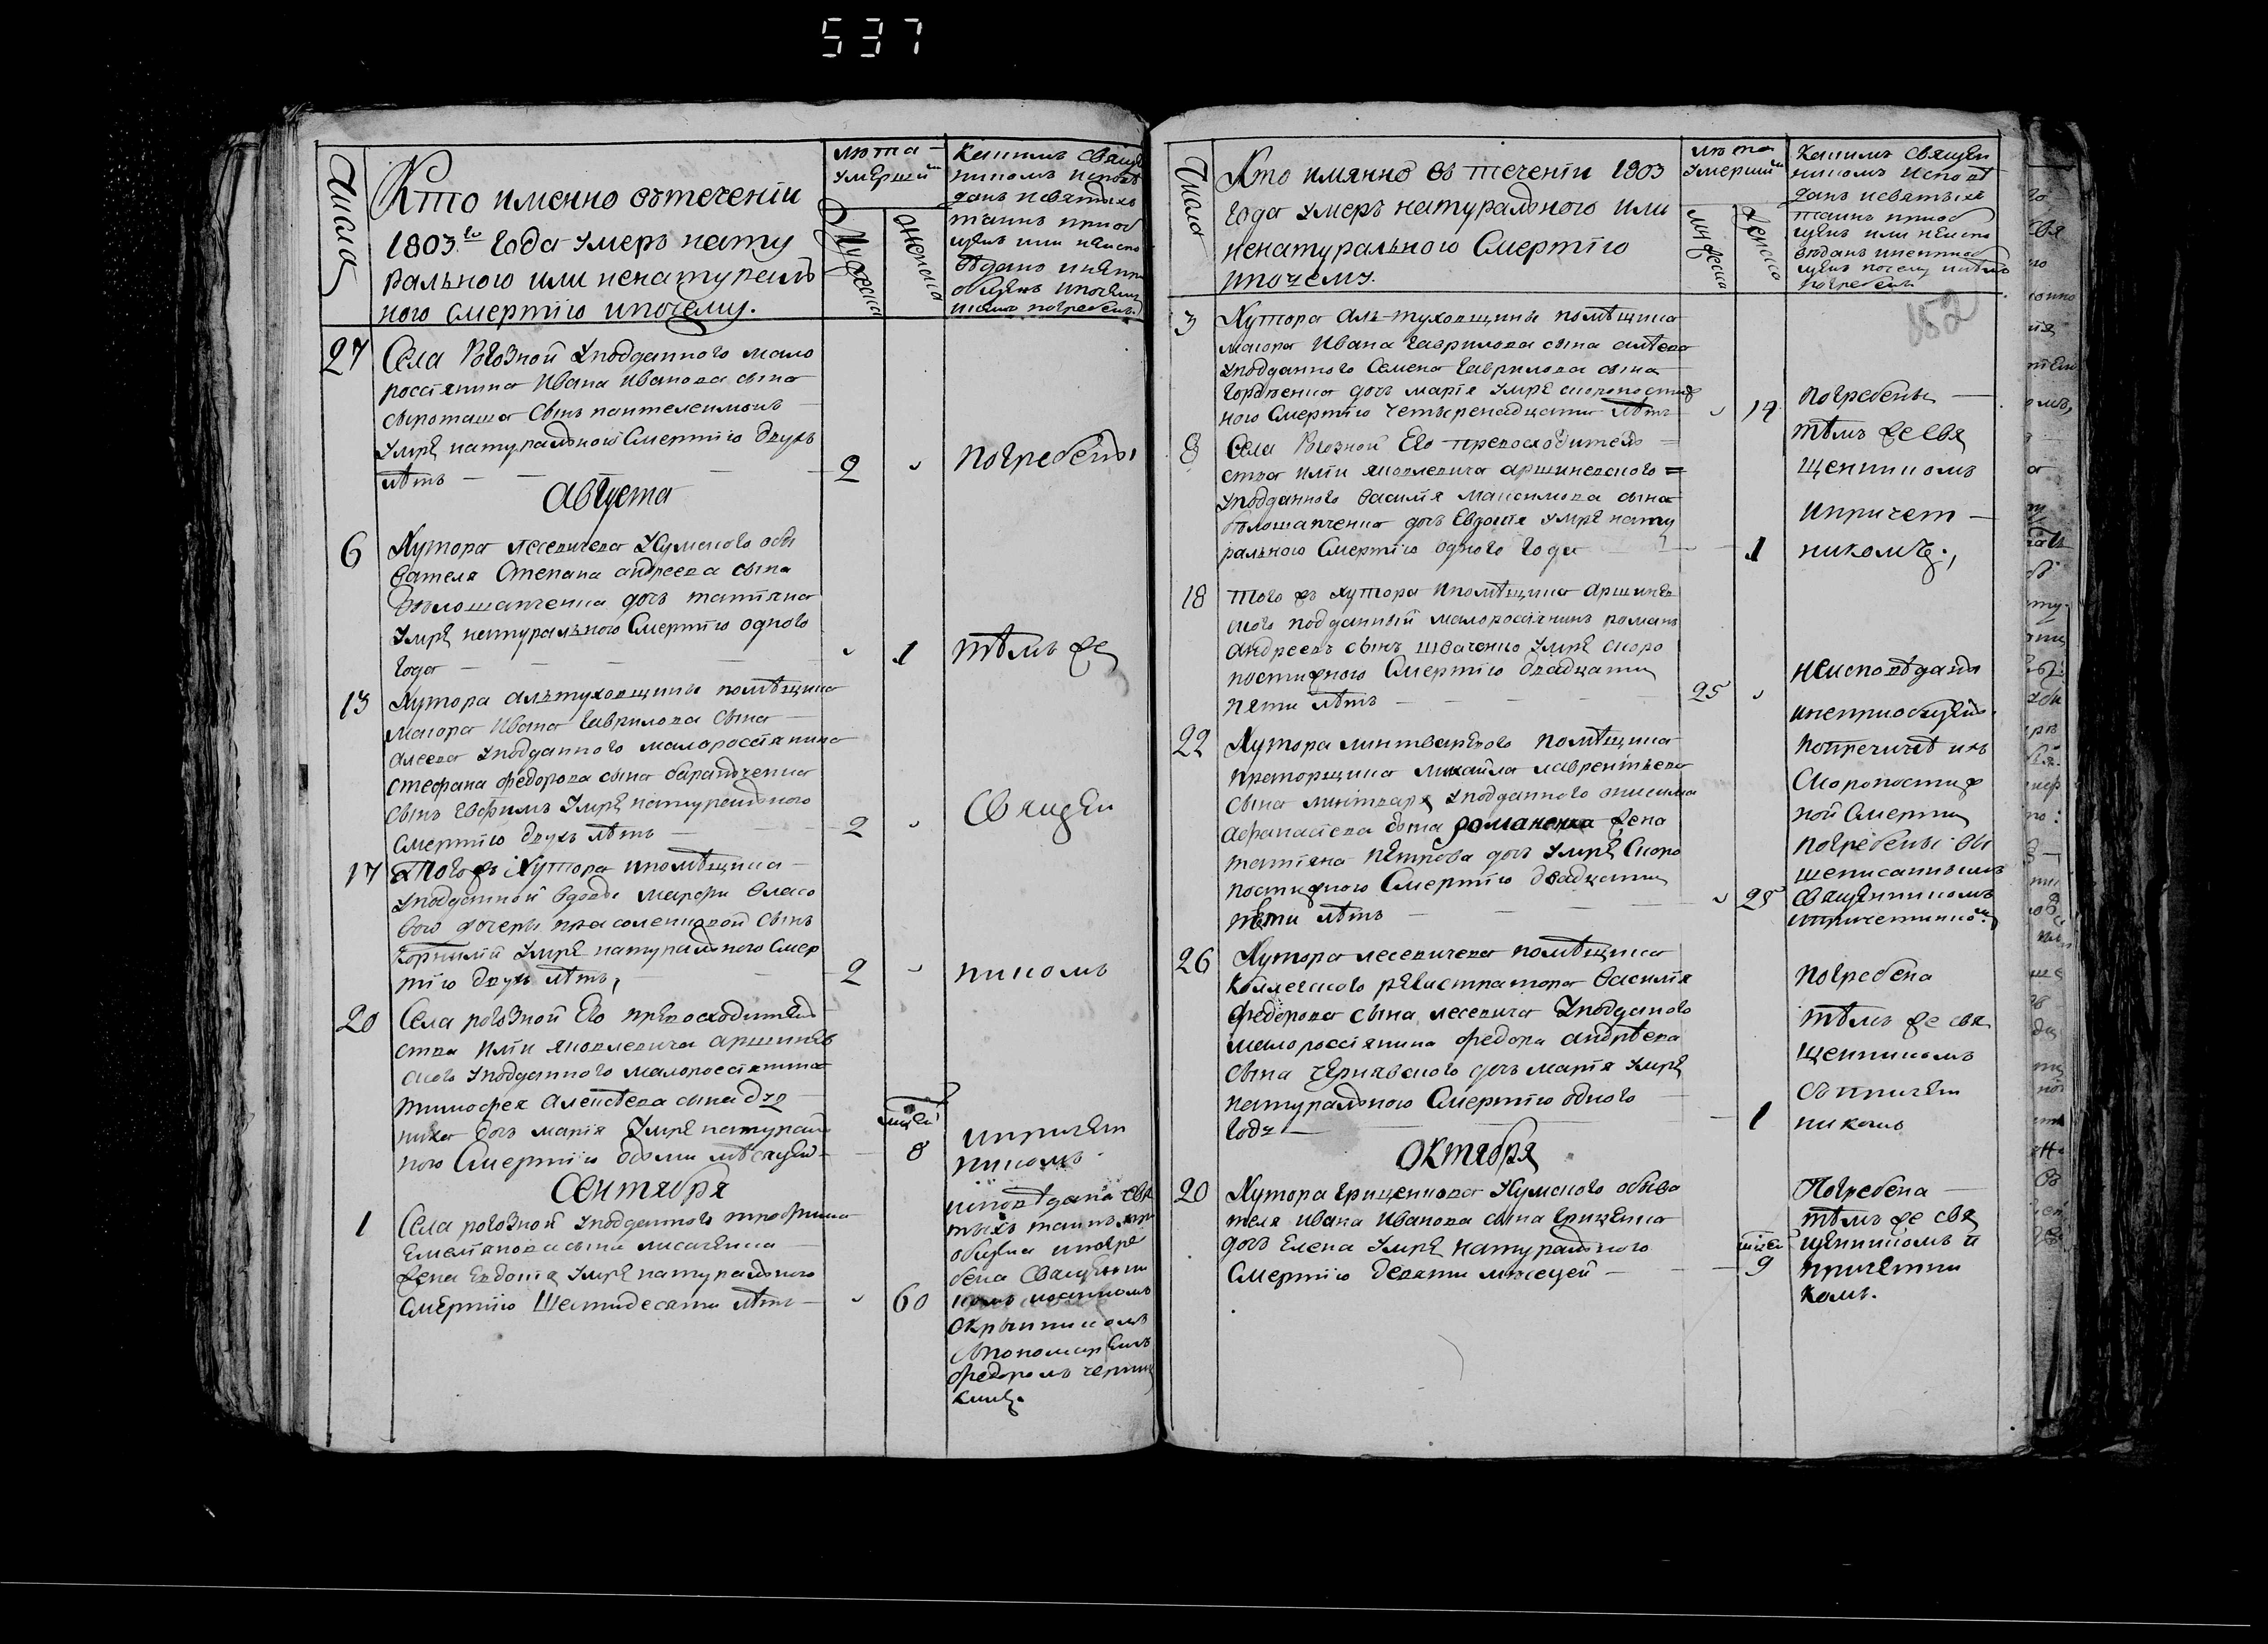 537
Числа
Кто именно втечении
1803.го года умеръ нату
рального или ненатураль
ного смертію ипочему.
лѣта
умершiи
Мужеска
Женска
Какимъ Священ
никомъ исповѣ
данъ исвятыхъ
таинъ приоб
щенъ или неиспо
вѣданъ инепри
общенъ ипочему
икѣмъ погребенъ.
27
Села Рогозной Уподданного мало
россіянина Ивана Иванова сына
сироташа сынъ пантелеимонъ
умре натуральною Смертію двухъ
лѣтъ
2
погребены
Августа
6
Хутора лесевичева Сумского обы
вателя Степана андреева сына
бѣлошапченка дочь татіяна
умре натурального Смертію одного
года
1
тѣмъ же
13
Хутора алътуховщины помѣщика
маиора Ивана Гаврилова сына
алеева уподданного малороссіянина
стефана федорова сына
сынъ Евфимъ умре натурального
Смертію двухъ лѣтъ
2
Священ
17
Того жъ Хутора ипомѣщика
уподданной вдовы марфы власо
вого дочеры сынъ
Корнилій умре натурального смер
тію двухъ лѣтъ,
2
никомъ
20
Села рогозной Его превосходитель
ства Ильи яковлевича аршинев
ского уподданного малороссіянина
тимофея алексѣева сына дзю
ника дочъ марія умре натураль
ного Смертію восми мѣсяцей
мцей
8
ипричет
никомъ
Сентября
1
Села рогозной уподданного трофима
Емеліянова сына лисаченка
жена Евдокія умре натурального
Смертію Шестидесяти лѣтъ
60
исповѣдана свя
тыхъ таинъ при
общена ипогре
бена Священни
комъ
Спономаремъ
федоромъ черня
Числа
Кто имянно въ теченіи 1803
года умеръ натурального или
ненатурального Смертію
ипочему.
лѣта
умершiи
Мужеска
Женска
Какимъ Священ
никомъ исповѣ
данъ исвятыхъ
таинъ приоб
щенъ или неиспо
вѣданъ инеприоб
щенъ почему икѣмъ
погребенъ
152
3
Хутора алътуховщины помѣщика
маиора Ивана Гаврилова сына алѣева
уподданного Семена Гаврилова сына
гордѣенка дочь марія умре скоропостиж
ного Смертію четыренадцати лѣтъ
14
погребены
тѣмъ же свя
щенникомъ
ипричет
никомъ.,
8
Села Рогозной Его превосходитель
ства Ильи яковлевича аршиневского
уподданного василія максимова сына
бѣлошапченка дочь Евдокія умре нату
рального Смертію одного года
1
18
того жъ хутора ипомѣщика аршинев
ского подданный малороссіянинъ романъ
андреевъ сынъ шваченко умре скоро
постижного Смертію двадцати
пяти лѣтъ
25
неисповѣданы
инеприобщены
попричинѣ ихъ
Скоропостиж
ной Смерти
погребены вы
шеписаннымъ
Священникомъ
ипричетникомъ
22
Хутора линтварьового помѣщика
прапорщика михайла лаврентьева
сына линтваря уподданного онисима
афанасіева сына романенка жена
татіяна петрова дочь умре скоро
постижного Смертію двадцати
пяти лѣтъ
25
26
Хутора лесевичева помѣщика
Коллежского регистратора василія
федорова сына лесевича уподданого
малороссіянина федора андрѣева
сына чернявского дочъ марія умре
натурального Смертію одного
годъ
1
погребена
тѣмъ же свя
щенникомъ
съ причет
никомъ
Октября
20
Хутора гриценкова Сумского обыва
теля ивана Иванова сына Гриценка
дочъ Елена умре натурального
Смертію девяти месяцей
мцей
9
Погребена
тѣмъ же свя
щенникомъ и
причетни
комъ.